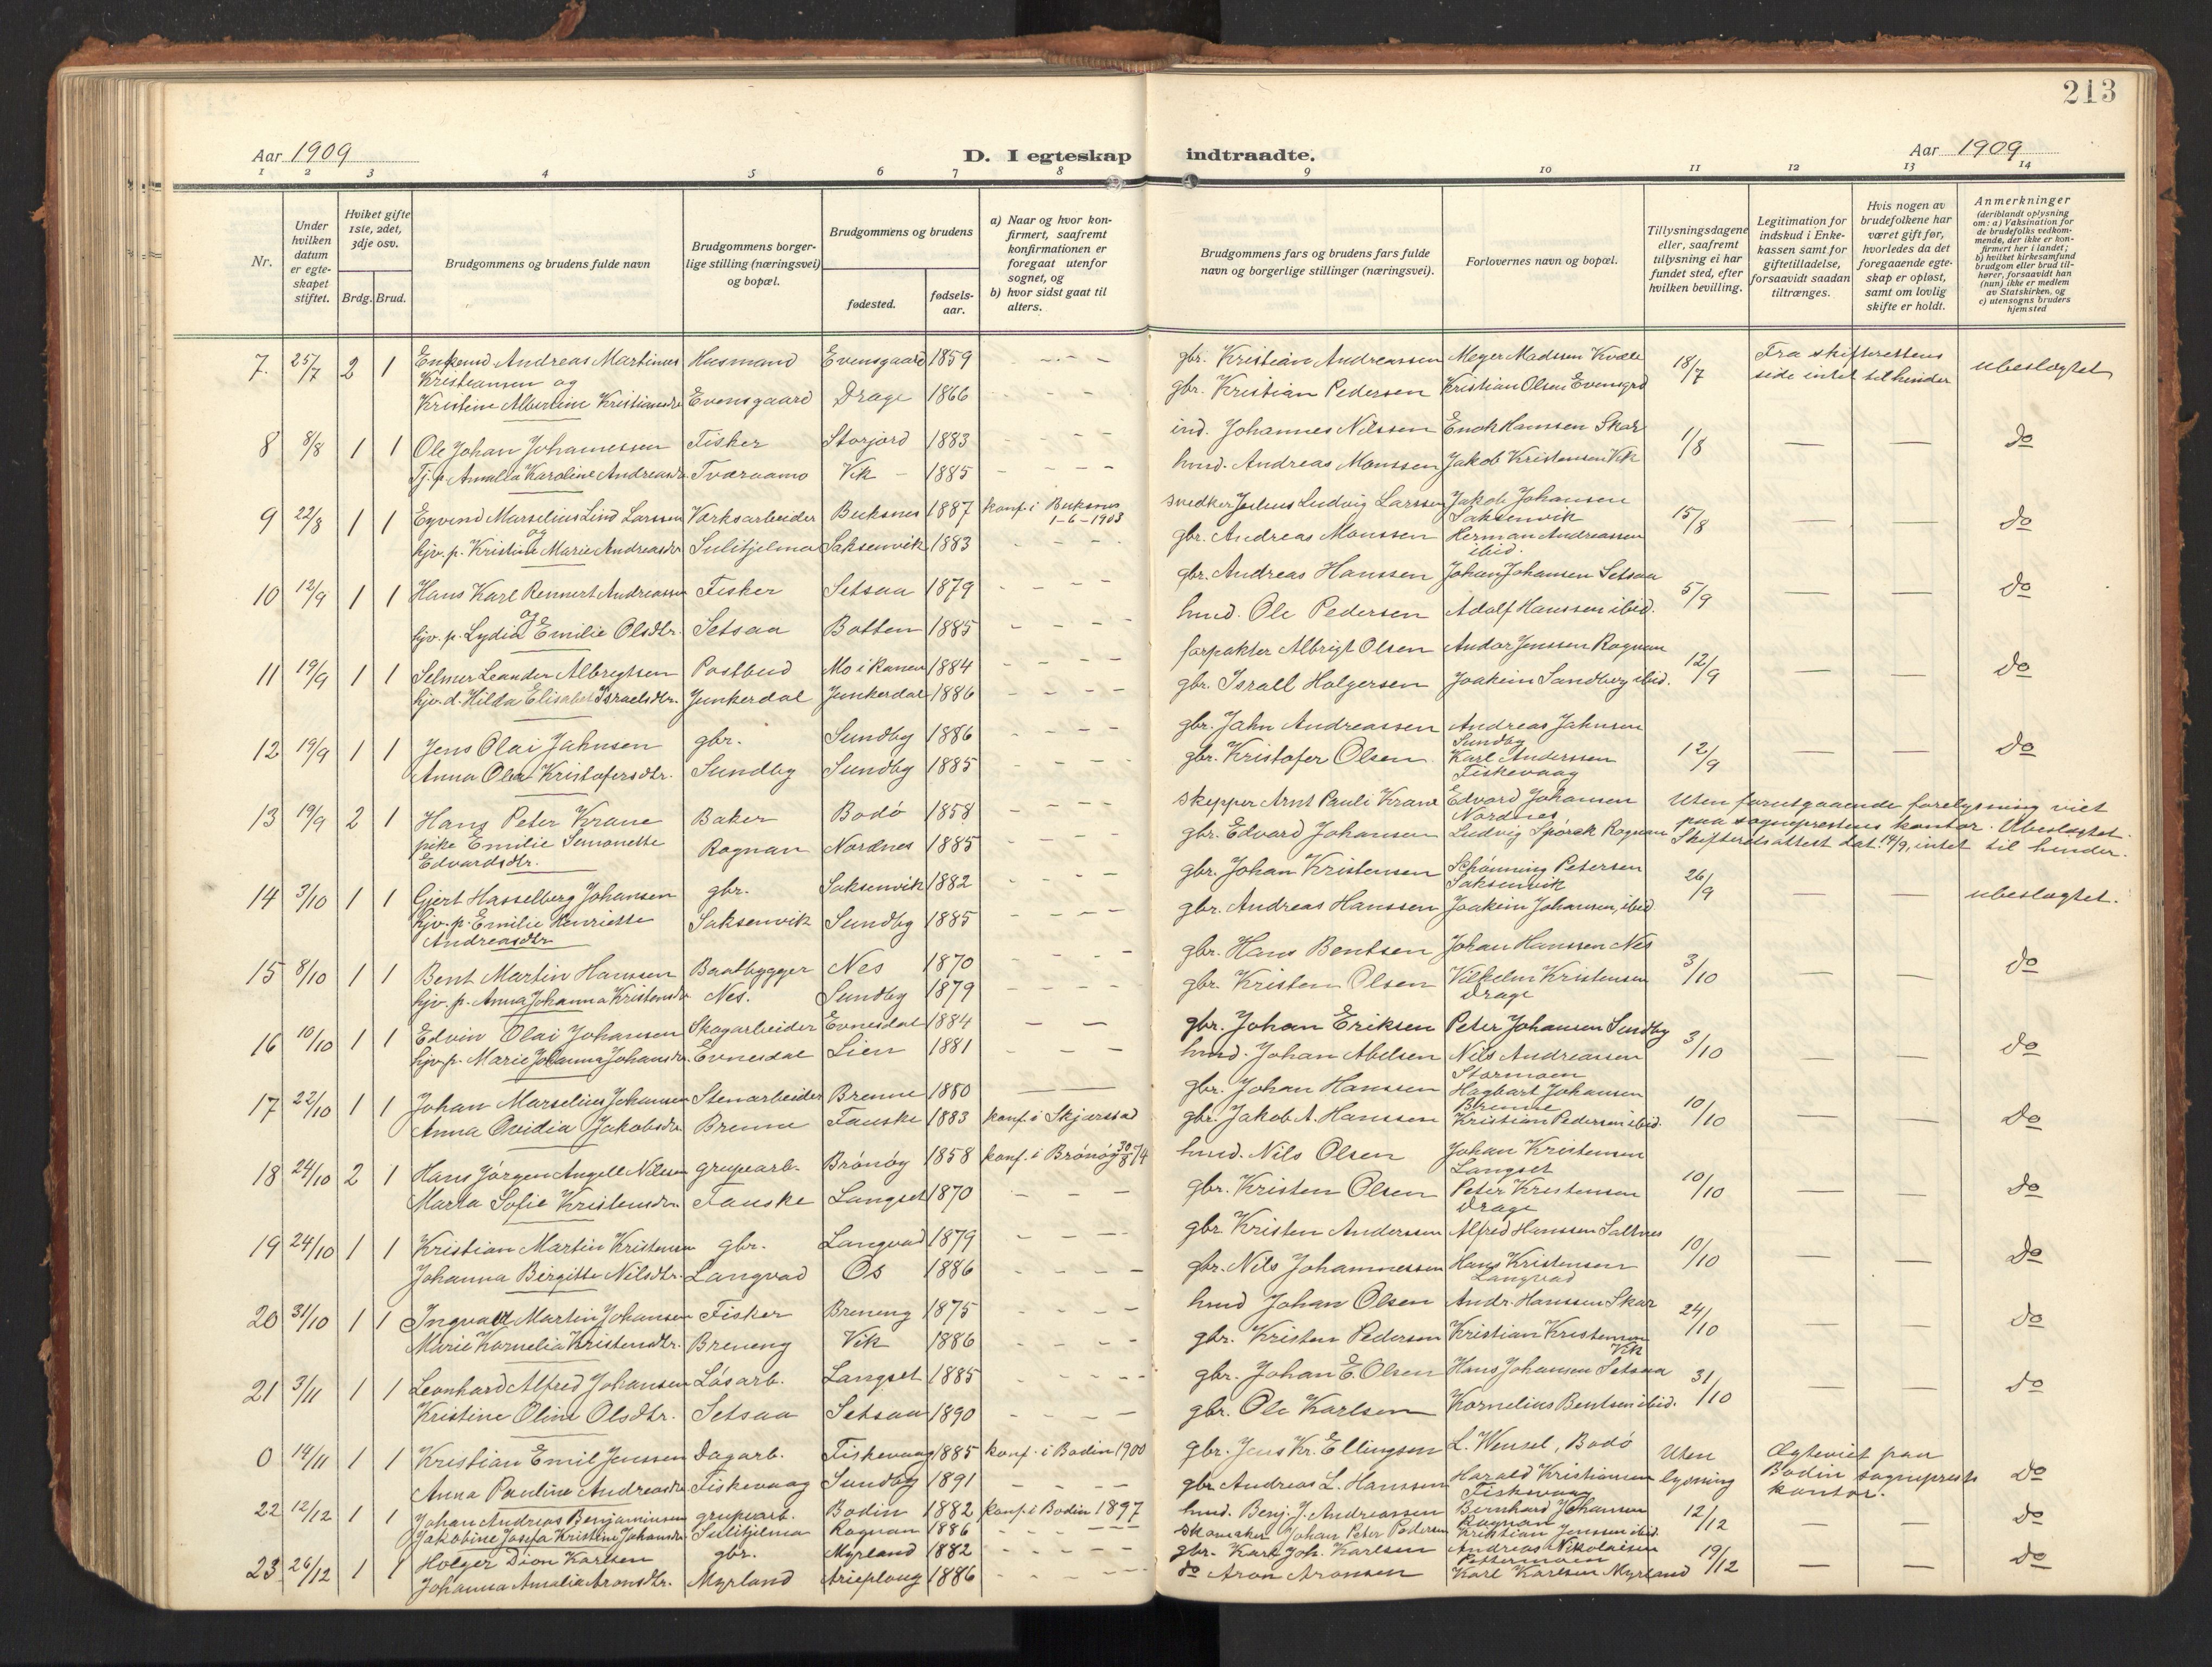 213
Aar 1909
D. I egteskap indtraadte.
Aar 1909
1 2 3 4 5 6 7 8 9 10 11 12 13 14
Nr.
Under hvilken datum er egteskapet stiftet.
Hviket gifte 1ste, 2det, 3dje osv.
Brdg. Brud.
Brudgommens og brudens fulde navn
Brudgommens borgerlige stilling (næringsvei) og bopæl.
Brudgommens og brudens
fødested.
fødselsaar.
a) Naar og hvor konfirmert, saafremt konfirmationen er foregaat utenfor sognet, og
b) hvor sidst gaat til alters.
Brudgommens fars og brudens fars fulde navn og borgerlige stillinger (næringsvei).
Forlovernes navn og bopæl.
Tillysningsdagene eller, saafremt tillysning ei har fundet sted, efter hvilken bevilling.
Legitimation for indskud i Enkekassen samt for giftetilladelse, forsaavidt saadan tiltrænges.
Hvis nogen av brudefolkene har været gift før, hvorledes da det foregaaende egteskap er opløst, samt om lovlig skifte er holdt.
Anmerkninger (deriblandt oplysning om: a) Vaksination for de brudefolks vedkommende, der ikke er konfirmert her i landet; b) hvilket kirkesamfund brudgom eller brud tilhører, forsaavidt han (hun) ikke er medlem av Statskirken, og c) utensogns bruders hjemsted
7. 25/7 2 1 Enkemd Andreas Martinus Husmand Evensgaard 1859 gbr. Kristian Andreassen Meyer Madssen Kvæle 18/7 Fra skifterettens side intet til hinder ubeslegtet
Kristiansen og
Kristine Albertine Kristiansdr Evensgaard Drage 1866 gbr. Kristian Pedersen Kristian Olsen Evensgrd
8 8/8 1 1 Ole Johan Johannessen Fisker Storjord 1883 ind. Johannes Nilssen Enok Hanssen Skar 1/8 — — do
Tj. p. Amalia Karoline Andreasdr. Tværaamo Vik 1885 hmd. Andreas Monssen Jakob Kristensen Vik
9 22/8 1 1 Eyvind Marselius Lind Larssen Værksarbeider Buksnes 1887 konf. i Buksnes 1-6-1903 snedker Julius Ludvig Larssen Jakob Johansen Saksenvik 15/8 — — do
og
hjv. p. Kristine Marie Andreasdr Sulitjelma Saksenvik 1883 gbr. Andreas Monssen Herman Andreassen ibid.
10 12/9 1 1 Hans Karl Rennert Andreassen Fisker Setsaa 1879 gbr. Andreas Hanssen Johan Johansen Setsaa 5/9 — — do
og
hjv. p. Lydia Emilie Olsdtr. Setsaa Botten 1885 hmd. Ole Pedersen Adolf Hanssen ibid.
11 19/9 1 1 Selmer Leander Albregtsen Postbud Mo i Ranen 1884 forpakter Albrigt Olsen Andor Jenssen Rognan 12/9 — — do
hjv. d. Hilda Elisabet Israelsdtr. Junkerdal Junkerdal 1886 gbr. Israll Holgersen Joakim Sandberg ibid.
12 19/9 1 1 Jens Olai Jahnsen gbr. Sundby 1886 gbr. Jahn Andreassen Andreas Jahnsen Sundby 12/9 — — do
Anna Olea Kristofersdtr. Sundby Sundby 1885 gbr. Kristofer Olsen Karl Anderssen Fiskevaag
13 19/9 2 1 Hans Peter Krane Baker Bodó 1858 skipper Arnt Pauli Krane Edvard Johansen Nordnes Uten forutgaaende forelysning viet
pike Emilie Simonette Rognan Nordnes 1885 gbr. Edvard Johansen Ludvig Spörck Rognan paa sogneprestens kontor. Ubeslegtet.
Edvardsdtr. Skifteretsattest dat. 14/9, intet til hinder.
14 3/10 1 1 Gjert Hasselberg Johansen gbr. Saksenvik 1882 gbr. Johan Kristensen Schønning Petersen Saksenvik 26/9 — — ubeslegtet.
hjv. p. Emilie Henriette Saksenvik Sundby 1885 gbr. Andreas Hanssen Joakim Johansen, ibid
Andreasdtr
15 8/10 1 1 Bent Martin Hanssen Baatbygger Nes 1870 gbr. Hans Bentsen Johan Hanssen Nes 3/10 — — do
hjv. p. Anna Johanna Kristensdr Nes. Sundby 1879 gbr. Kristen Olsen Vilhelm Kristensen Drage
16 10/10 1 1 Edvin Olai Johansen Skogarbeider Evnesdal 1884 gbr. Johan Eriksen Peter Johansen Sundby 3/10 — — do
hjv. p. Marie Johanna Johansdr Evnesdal Lien 1881 hmd. Johan Abelsen Nils Andreassen Stormoen
17 22/10 1 1 Johan Marselius Johansen Stenarbeider Brenne 1880 gbr. Johan Hanssen Hagbart Johansen Brenne 10/10 — — do
Anna Ovidia Jakobsdr Brenne Fauske 1883 konf. i Skjærstad gbr. Jakob A. Hanssen Kristian Pedersen ibid.
18 24/10 2 1 Hans Jørgen Angell Nilsen grupearb. Brónóy 1858 konf. i Brónóy 30/8 74 hmd. Nils Olsen Johan Kristensen Langset 10/10 — — do
Marta Sofie Kristensdr. Fauske Langset 1870 gbr. Kristen Olsen Peter Kristensen Drage
19 24/10 1 1 Kristian Martin Kristensen gbr. Langvad 1879 gbr. Kristen Anderssen Alfred Hanssen Saltnes 10/10 — — do
Johanna Birgitte Nilsdtr. Langvad Os 1886 gbr. Nils Johannessen Hans Kristensen Langvad
20 31/10 1 1 Ingvald Martin Johansen Fisker Breneng 1875 hmd Johan Olsen Andr. Hanssen Skar 24/10 — — do
Marie Kornelia Kristensdtr. Breneng Vik 1886 gbr. Kristen Pedersen Kristian Kristensen Vik
21 3/11 1 1 Leonhard Alfred Johansen Lósarb. Langset 1885 gbr. Johan E. Olsen Hans Johansen Setsaa 31/10 — — do
Kristine Oline Olsdtr. Setsaa Setsaa 1890 gbr. Ole Karlsen Kornelius Bentsen ibid.
0 14/11 1 1 Kristian Emil Jenssen Dagarb. Fiskevaag 1885 konf. i Bodin 1900 gbr. Jens Kr. Ellingsen L. Wensel, Bodó Uten lysning Ægteviet paa Bodin sogneprests kontor. do
Anna Pauline Andreasdr Fiskevaag Sundby 1891 gbr. Andreas L. Hanssen Harald Kristiansen Fiskevaag
22 12/12 1 1 Johan Andreas Benjaminsen grupearb. Bodin 1882 konf. i Bodin 1897 hmd. Benj. J. Andreassen Bernhard Johansen Rognan 12/12 — — do
Jakobine Josefa Kristine Johansdr Sulitjelma Rognan 1886 skomaker Johan Peter Pedersen Kristian Jenssen ibid.
23 26/12 1 1 Holger Dion Karlsen gbr. Myrland 1882 gbr. Karl Joh. Karlsen Andreas Nikolaisen Pettermoen 19/12 — — do
Johanna Amalia Aronsdtr. Myrland Arieploug 1886 do Aron Aronsen Karl Karlsen Myrland